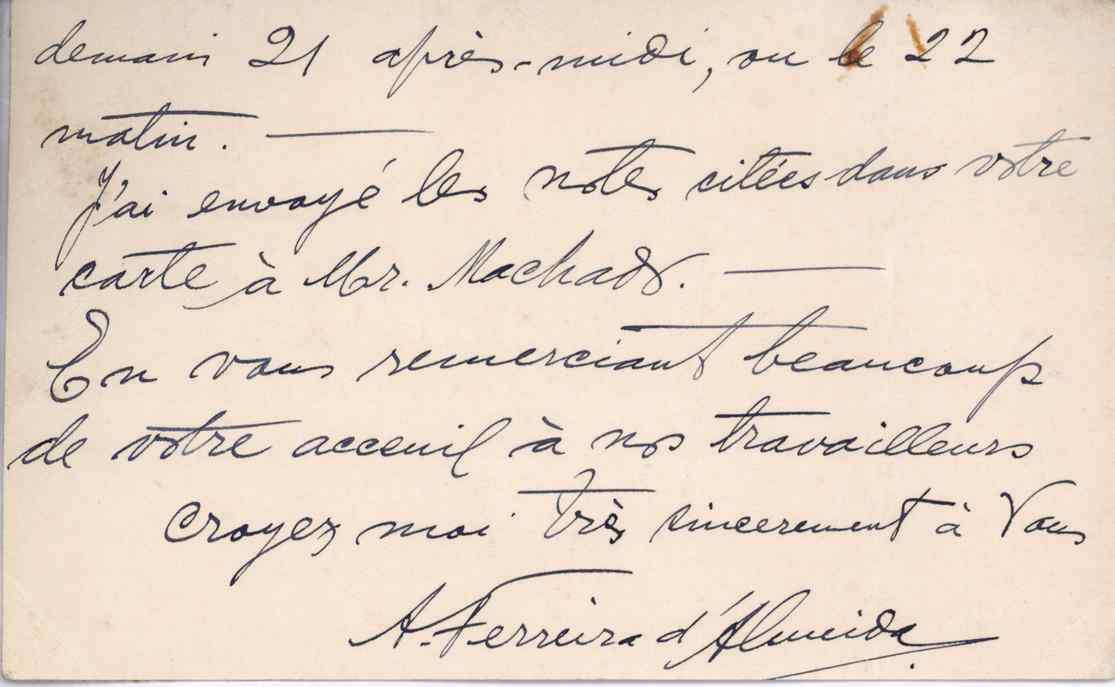 demain 21 après-midi, ou le 22
matin. —
J'ai envoyé les notes citées dans votre
carte à Mr. Machado. —
En vous remerciant beaucoup
de votre acceuil à nos travailleurs
croyez moi très sincerement à Vous
A. Ferreira d'Almeida